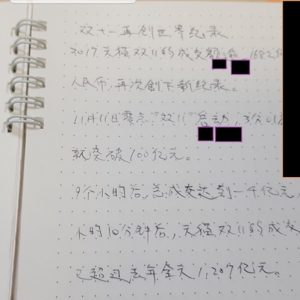 双十一再创世界纪录
2017天猫双11的成交额
人民币,再次创下新纪录。
11月11日零点,"双11"启动,3分01
就突破100亿元。
9个小时后,总成交达到一千亿元
小时10分钟后,天猫双11的成交
已超过去年全天1,207亿元。